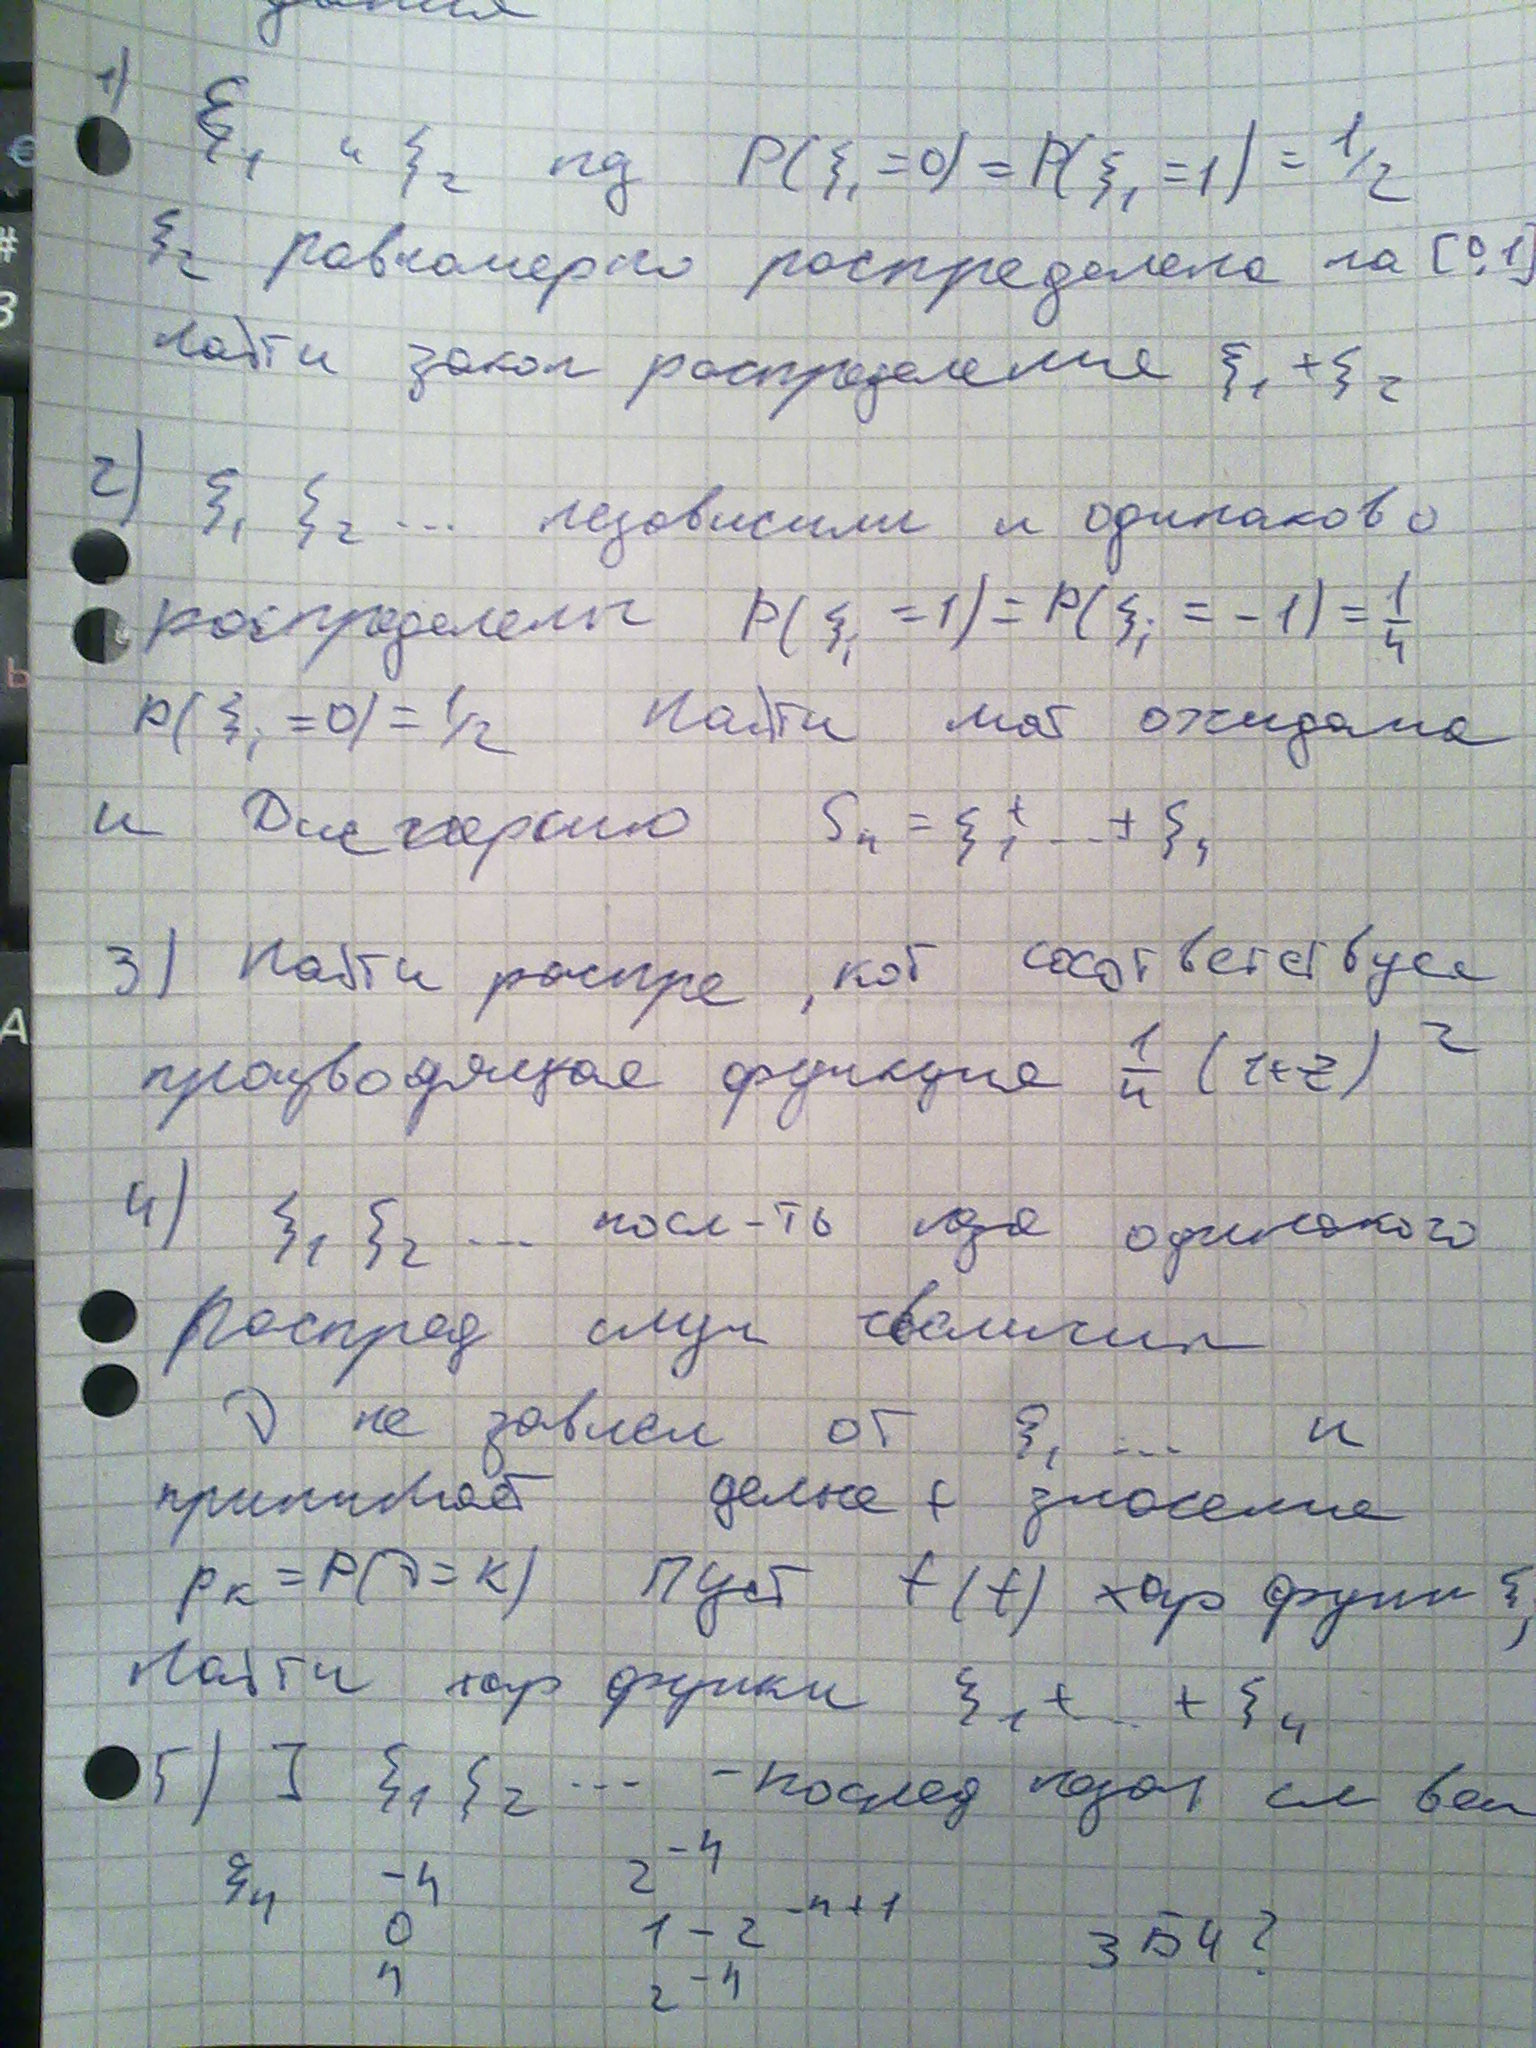 1) ξ₁ и ξ₂ нз P(ξ₁=0)=P(ξ₁=1)=1/2
ξ₂ равномерно распределена на [0,1]
Найти закон распределение ξ₁+ξ₂
2) ξ₁ ξ₂ ... независимы и одинаково
распределены P(ξᵢ=1)=P(ξᵢ=-1)=1/4
P(ξᵢ=0)=1/2 Найти мат ожидание
и Дисперсию Sₙ=ξ₁+...+ξₙ
3) Найти распре, кот соответствуе
производящая функция 1/4 (1+z)²
4) ξ₁ ξ₂ ... посл-ть нез одинаково
Распред случ величин
не завсел от ξ₁ ... и
принимает целые + значение
pₖ=P(ν=k) Пуст f(t) хар функ ξⱼ
Найти хар функи ξ₁+...+ξₙ
5) ] ξ₁ ξ₂ ... - послед незав сл вел
ξₙ -n 2⁻ⁿ
0 1-2⁻ⁿ⁺¹ ЗБЧ?
n 2⁻ⁿ